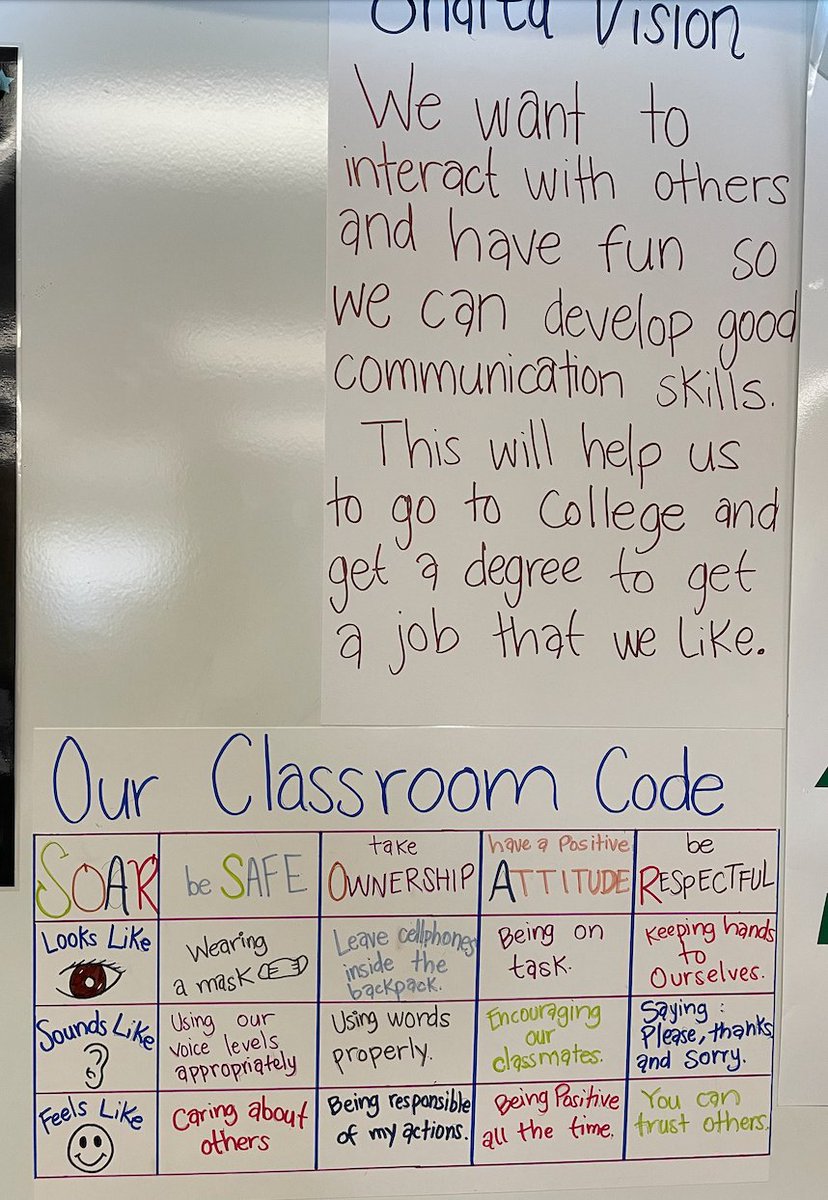 Shared Vision
We want to
interact with others
and have fun so
we can develop good
communication skills.
This will help us
to go to College and
get a degree to get
a job that we like.
Our Classroom Code
SOAR
be SAFE
take
OWNERSHIP
have a Positive
ATTITUDE
be
RESPECTFUL
Looks Like
Wearing
a mask
Leave cellphones
inside the
backpack.
Being on
task.
Keeping hands
to
Ourselves.
Sounds Like
Using our
voice levels
appropriately
Using words
properly.
Encouraging
our
classmates.
Saying :
Please, thanks,
and sorry.
Feels Like
Caring about
others
Being responsible
of my actions.
Being Positive
all the time.
You can
trust others.